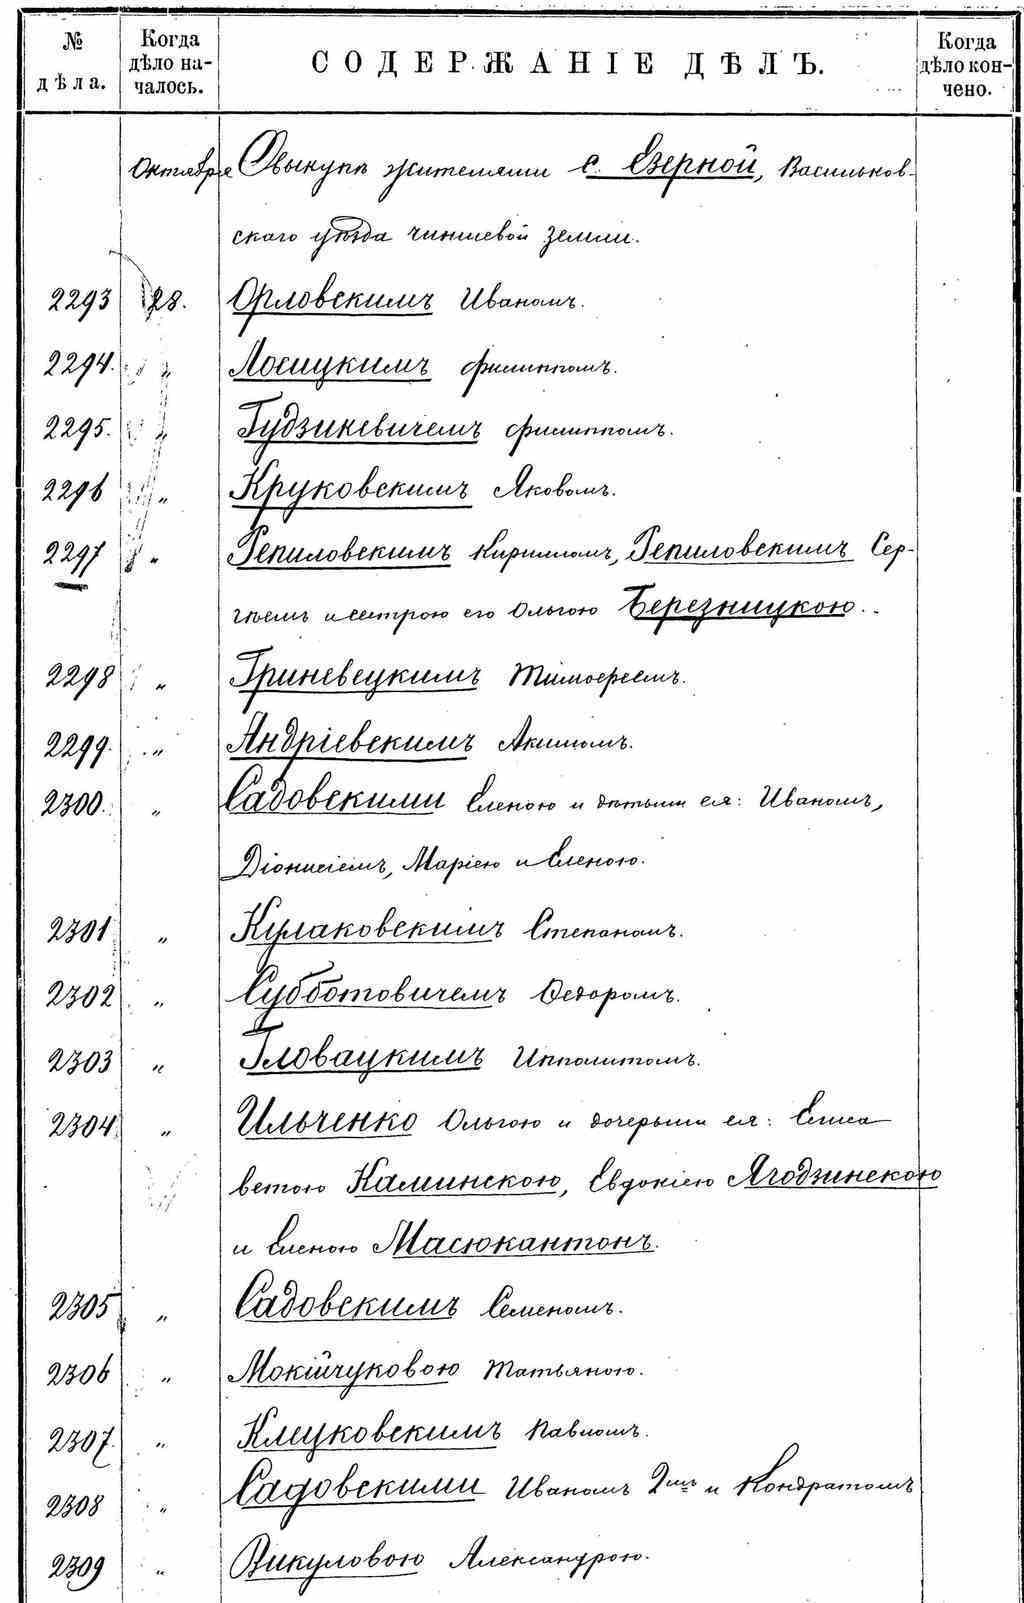 № дѣла. Когда дѣло на- чалось. СОДЕРЖАНІЕ ДѢЛЪ. Когда дѣло кон- чено.
Октября О выкупѣ жителями с. Езерной, Васильков-
скаго уѣзда чиншевой земли.
2293 28. Орловскимъ Иваномъ.
2294. " Лосицкимъ Филиппомъ.
2295. " Гудзикевичемъ Филиппомъ.
2296 " Круковскимъ Яковомъ.
2297 " Репиловскимъ Кирилломъ, Репиловскимъ Сер-
гѣемъ и сестрою его Ольгою Березницкою.
2298 " Гриневецкимъ Тимофеемъ.
2299. " Андріевскимъ Акимомъ.
2300. " Садовскими Еленою и дѣтьми ея: Иваномъ,
Діонисіемъ, Маріею и Еленою.
2301 " Кулаковскимъ Степаномъ.
2302 " Субботовичемъ Ѳедоромъ.
2303 " Гловацкимъ Ипполитомъ.
2304 " Ильченко Ольгою и дочерьми ея: Елиса
ветою Каминскою, Евдокіею Ягодзинскою
и Еленою Масюкантонъ.
2305 " Садовскимъ Семеномъ.
2306 " Мокійчуковою Татьяною.
2307. " Клецковскимъ Павломъ.
2308 " Садовскими Иваномъ 2мъ и Кондратомъ
2309 " Викуловою Александрою.